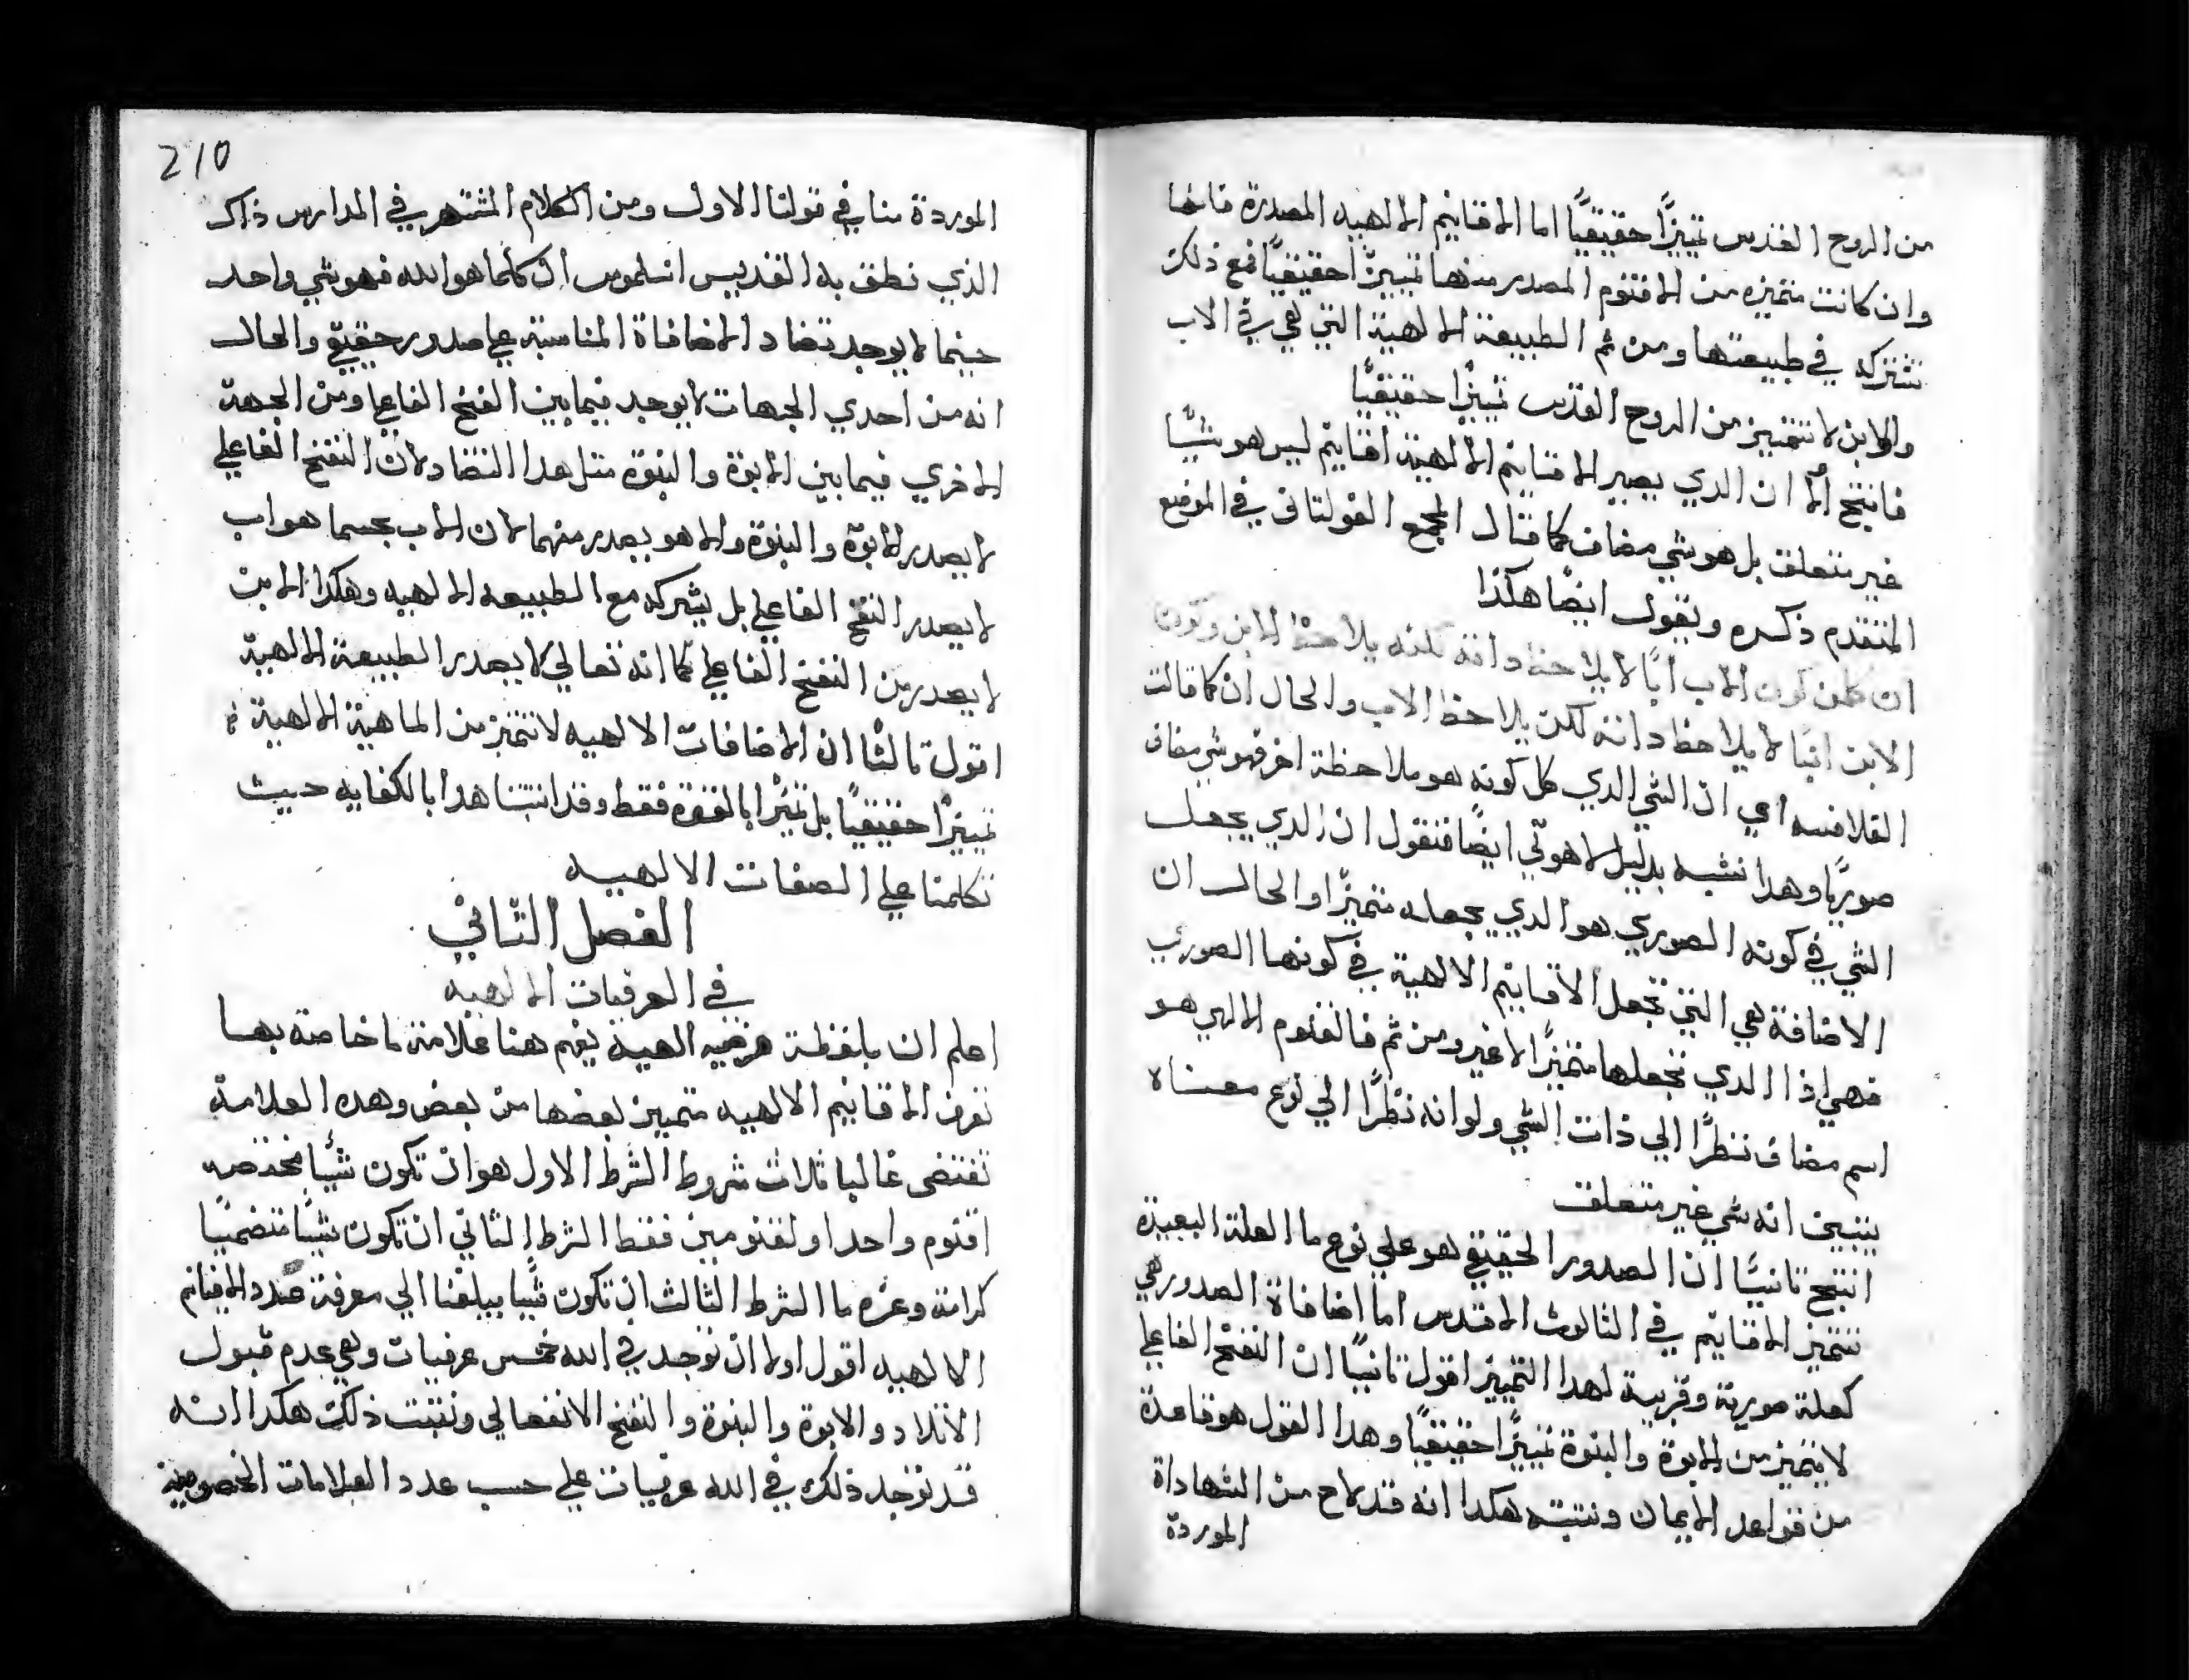 من الروح القدس تميزًا حقيقيًا اما الاقانيم الالهيه المصدرة فانها
وان كانت متميزه من الاقنوم المصدر منها تمييزًا حقيقيًا فمع ذلك
تشترك في طبيعتها ومن ثم الطبيعة الالهية التي هي في الاب
والابن لا تتمييز من الروح القدس تمييزًا حقيقيًا
فانتج اولًا ان الذي يصير الاقانيم الالهية اقانيم ليس هو شيًا
غير متعلق بل هو شي مضاف كما قال المجمع الفولتاني في الموضع
المتقدم ذكره ويقول ايضًا هكذا
ان كلمن كون الاب ابًا لا يلاحظ داته لكنه يلاحظ الابن وكون
الابن ابنًا لا يلاحظ داته لكن يلاحظ الاب والحال ان كما قالت
الفلاسفه اعي ان الشي الدي كل كونه هو ملاحظة اخر فهو شي مضاف
صوريًا وهدا نثبته بدليل لاهوتي ايضًا فنقول ان الدي يجعل
الشي في كونه الصوري هو الدي يجعله متميزًا والحال ان
الاضافة هي التي تجعل الاقانيم الالهية في كونها الصوري
فهي اذا الدي تجعلها متميزًا لا غير ومن ثم فالقنوم الالهي هو
اسم مضاف نظرًا الي ذات الشي ولو انه نظرًا الي نوع معناه
يتبين انه شي غير متعلق
انتج تانيًا ان الصدور الحقيقي هو علي نوع ما العلة البعيدة
تتميز الاقانيم في الثالوث الاقدس اما اضافاة الصدور هي
كعلة صورية وقريبة لهدا التمييز اقول تانيًا ان النفخ الفاعلي
لا يتميز من الابوة والبنوة تمييزًا حقيقيًا وهدا القول هو قاعدة
من قواعد الايمان ونثبته هكدا انه قد لاح من الشهاداة
الموردة
210
الموردة منا في قولنا الاول ومن الكلام المشتهر في المدارس ذاك
الذي نطق به القديس انسلموس ان كلما هو الله فهو شي واحد
حيثما لا يوجد تضاد الاضافاة المناسبة علي صدور حقيقي والحال
انه من احدي الجهات لا يوجد فيما بين النفخ الفاعلي ومن الجهة
الاخري فيما بين الابوة والبنوة مثل هدا التضاد لان النفخ الفاعلي
لا يصدر الابوة والبنوة ولا هو يصدر منهما لان الاب بحسما هو اب
لا يصدر النفخ الفاعلي بل يشركه مع الطبيعه الالهيه وهكذا الابن
لا يصدر من النفخ الفاعلي كما انه تعالي لا يصدر الطبيعة الالهية
اقول تالثًا ان الاضافات الالهيه لا تتميز من الماهية الالهية
تمييزًا حقيقيًا بل تميزًا بالقوة فقط وقد اثبتنا هدا بالكفايه حيث
تكلمنا علي الصفات الالهيه
الفصل الثاني
في العرفيات الالهيه
اعلم ان بلفظة عرفيه الهية يفهم هنا علامة ما خاصة بها
نعرف الاقانيم الالهيه متميين بعضها من بعض وهده العلامة
تقتضي غالبا ثلاث شروط الشرط الاول هو ان تكون شيًا مختصه
اقنوم واحد او لقنومين فقط الشرط الثاني ان تكون شيًا متضمنًا
كرامة وعزه ما الشرط الثالث ان تكون شيًا يبلغنا الي معرفة عدد الاقانيم
الالهيه اقول اولا ان توجد في الله خمس عرفيات وهي عدم قبول
الاتلاد والابوة والبنوة والنفخ الانفعالي ونثبت ذلك هكدا انه
قد توجد ذلك في الله عرفيات علي حسب عدد العلامات الخصوصية